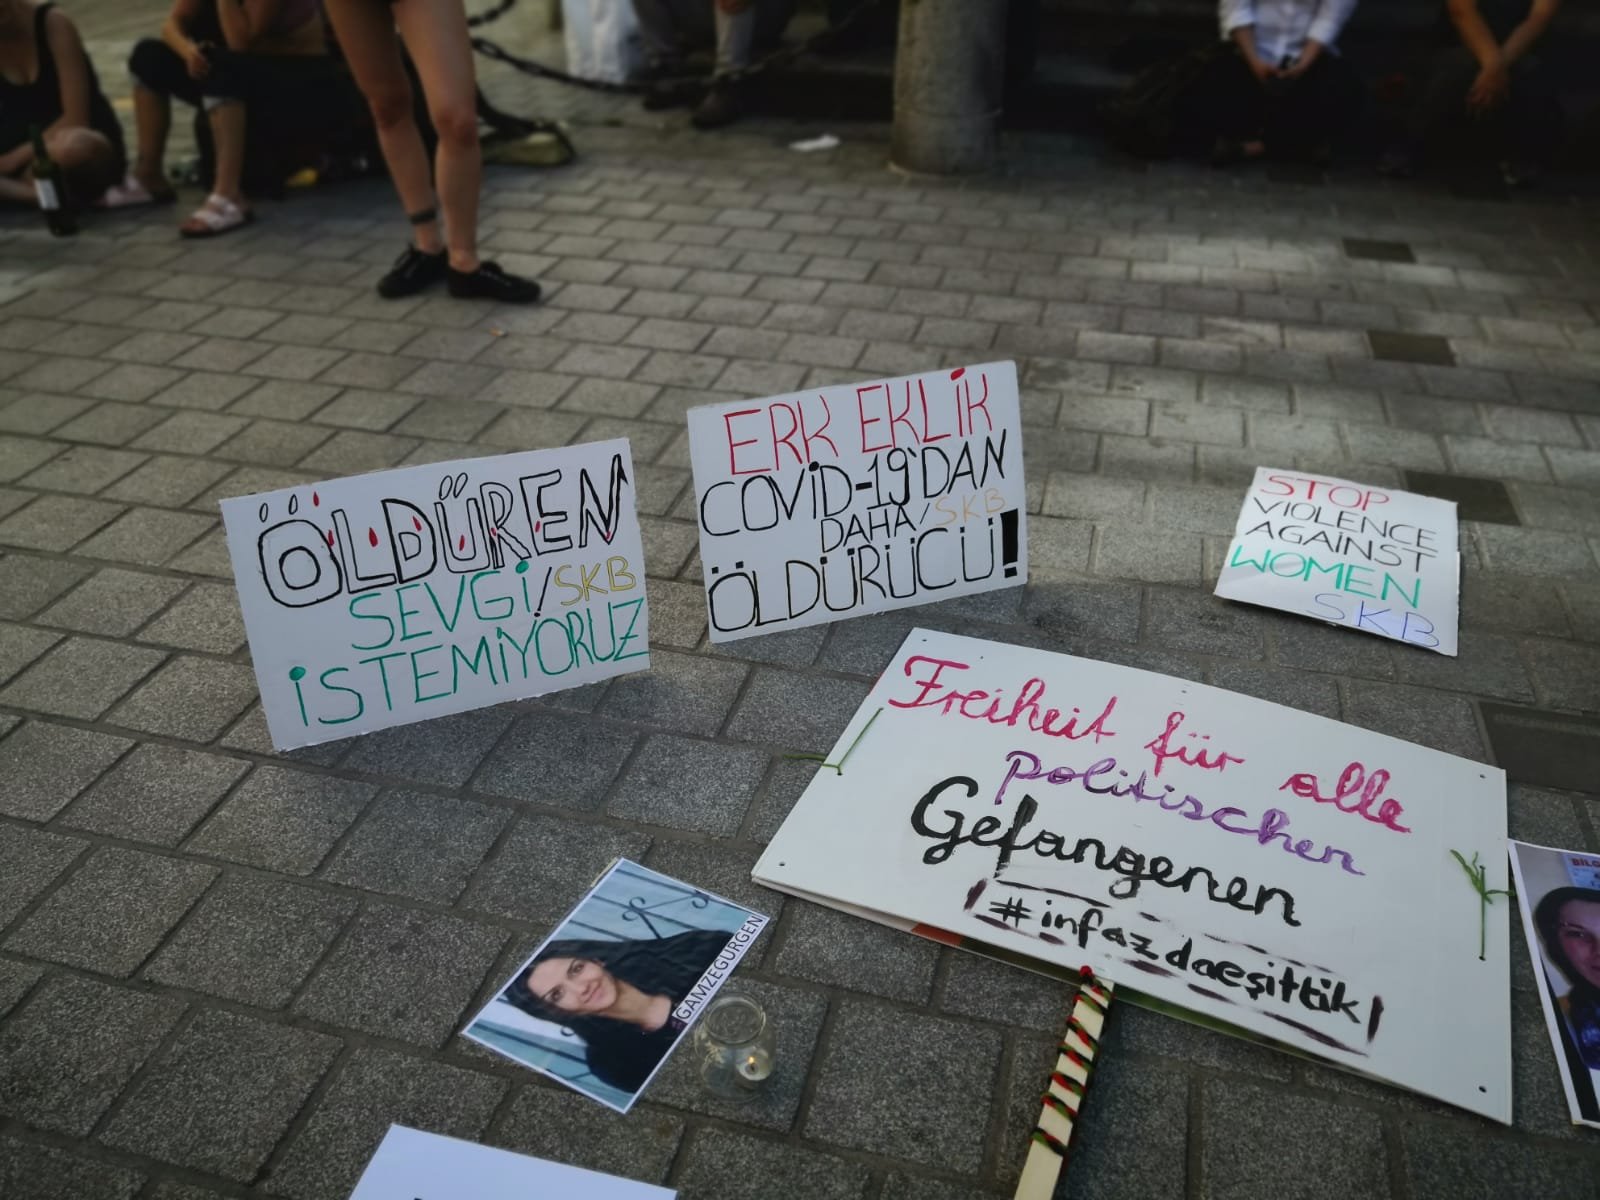 ÖLDÜREN
SEVGİ/SKB
İSTEMİYORUZ
ERK EKLİK
COVİD-19'DAN
DAHA/SKB
ÖLDÜRÜCÜ!
STOP
VIOLENCE
AGAİNST
WOMEN
SKB
Freiheit für alle
politischen
Gefangenen
#infazdaeşittik
GAMZEGÜRGEN